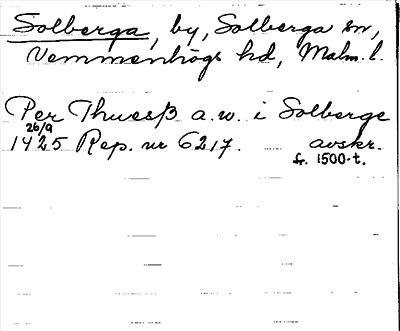 Solberga, by, Solberga sn,
Vemmenhögs hd, Malm. l.
Per Thuesß a.w. i Solberge
26/9
1425 Rep. nr 6217. avskr.
fr. 1500-t.